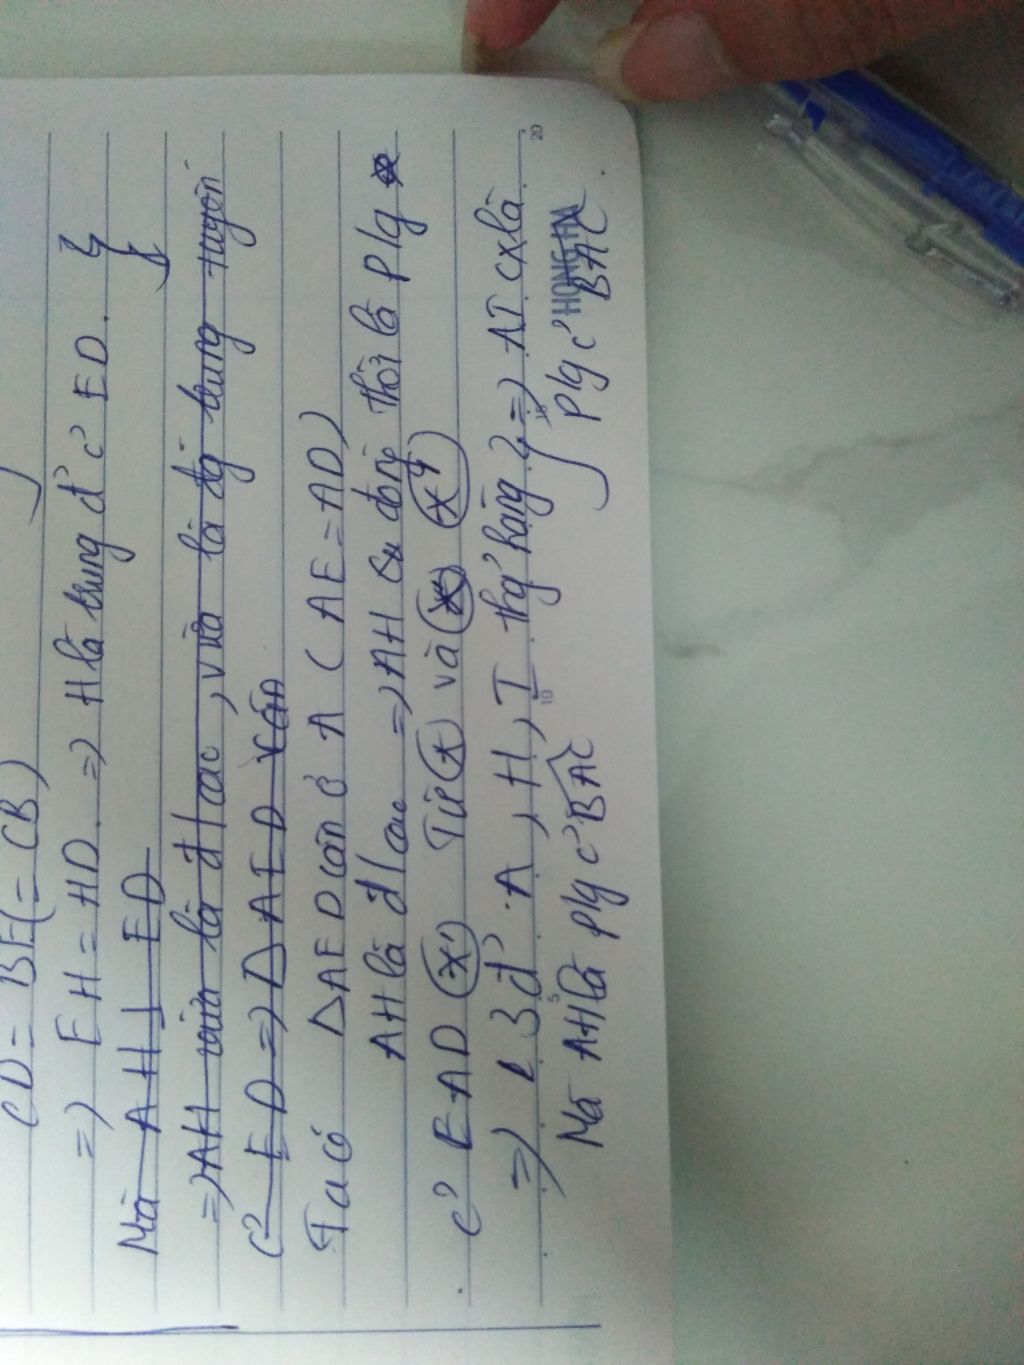 CD = BE (= CB)
=) EH = HD. =) H là trung đ' c' ED.
Mà AH ⊥ ED
=) AH vừa là đ/cao, vừa là đg trung tuyến
c' ED =) Δ AED cân
Ta có ΔAED cân ở A (AE = AD)
AH là đ/cao =) AH đồng thời là P/g
c' EAD Từ và
=) 3 đ' A, H, I thg' hàng =) AI cx là
Mà AH là p/g c' BAC P/g c' BAC.
HONG HA
5
10
15
20